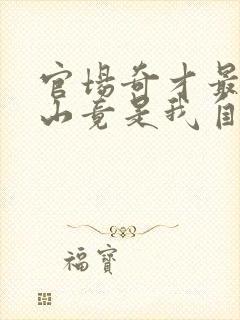 官場奇才最
山竟是我自
福寶